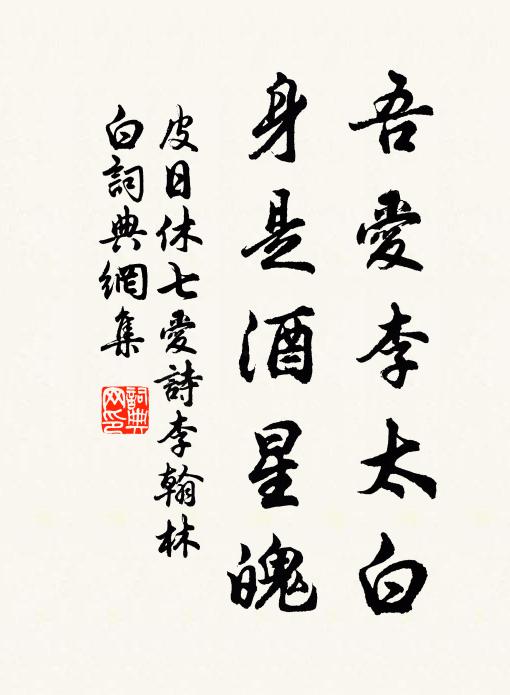 吾愛李太白
身是酒星魄
皮日休七愛詩李翰林
白詞典網集
詞典
网印